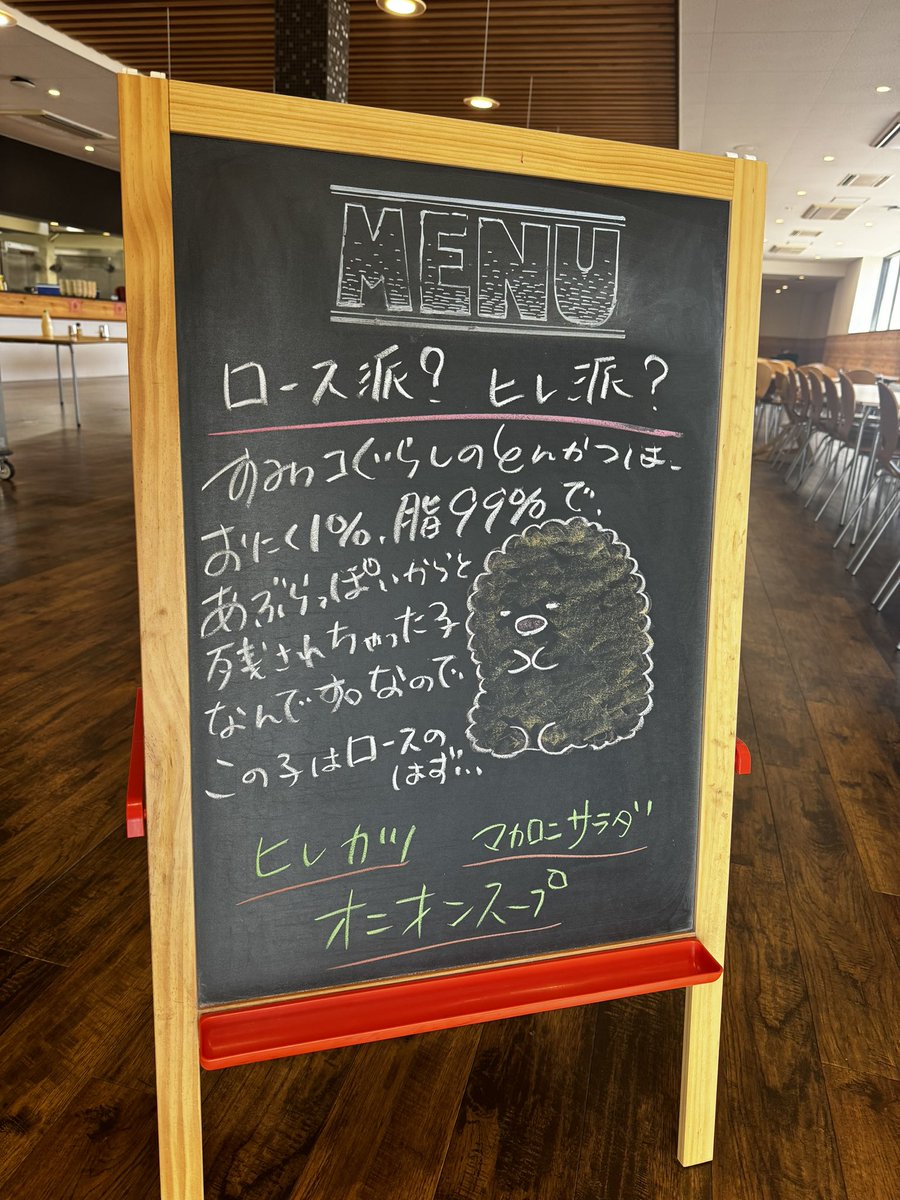 MENU
ロース派? ヒレ派?
すみっコぐらしのとんかつは、
おにく1%、脂99%で、
あぶらっぽいからと
残されちゃった子
なんです。なので、
この子はロースの
はず...
ヒレカツ マカロニサラダ
オニオンスープ